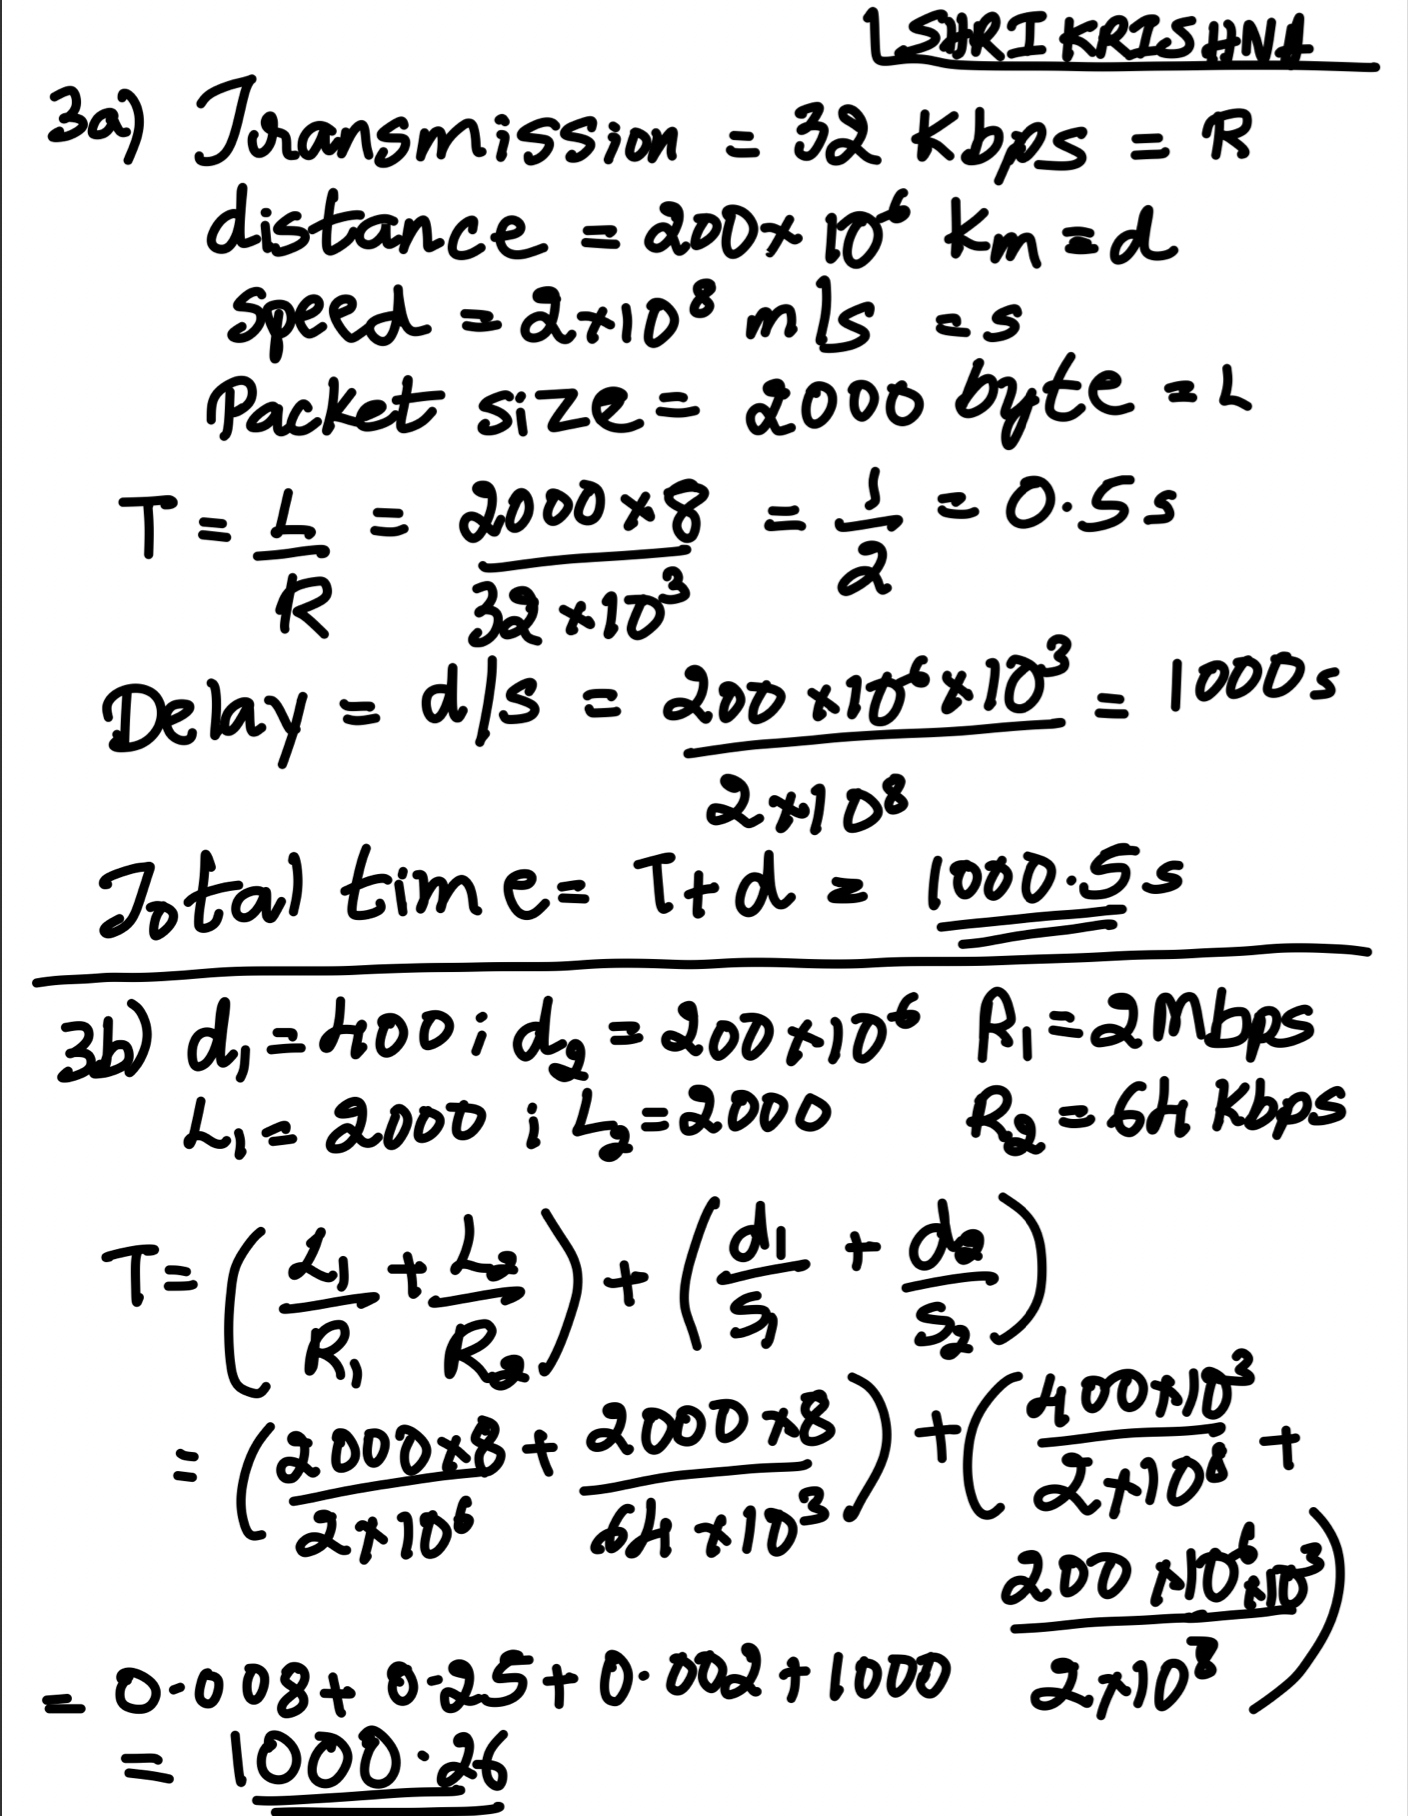 SHRI KRISHNA
3a) Transmission = 32 Kbps = R
distance = 200×10⁶ Km = d
speed = 2×10⁸ m/s = s
Packet size = 2000 byte = L
T = L/R = (2000×8)/(32×10³) = 1/2 = 0.5 s
Delay = d/s = (200×10⁶×10³)/(2×10⁸) = 1000 s
Total time = T+d = 1000.5 s
3b) d₁ = 400 ; d₂ = 200×10⁶ R₁ = 2 Mbps
L₁ = 2000 ; L₂ = 2000 R₂ = 64 Kbps
T = (L₁/R₁ + L₂/R₂) + (d₁/S₁ + d₂/S₂)
= ((2000×8)/(2×10⁶) + (2000×8)/(64×10³)) + ((400×10³)/(2×10⁸) +
(200×10⁶×10³)/(2×10⁸))
= 0.008 + 0.25 + 0.002 + 1000
= 1000.26